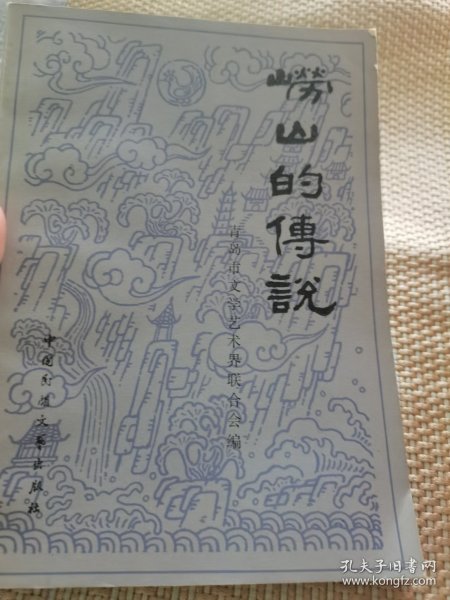 嶗山的傳說
青岛市文学艺术界联合会编
中国民间文艺出版社
孔夫子旧书网
www.kongfz.com